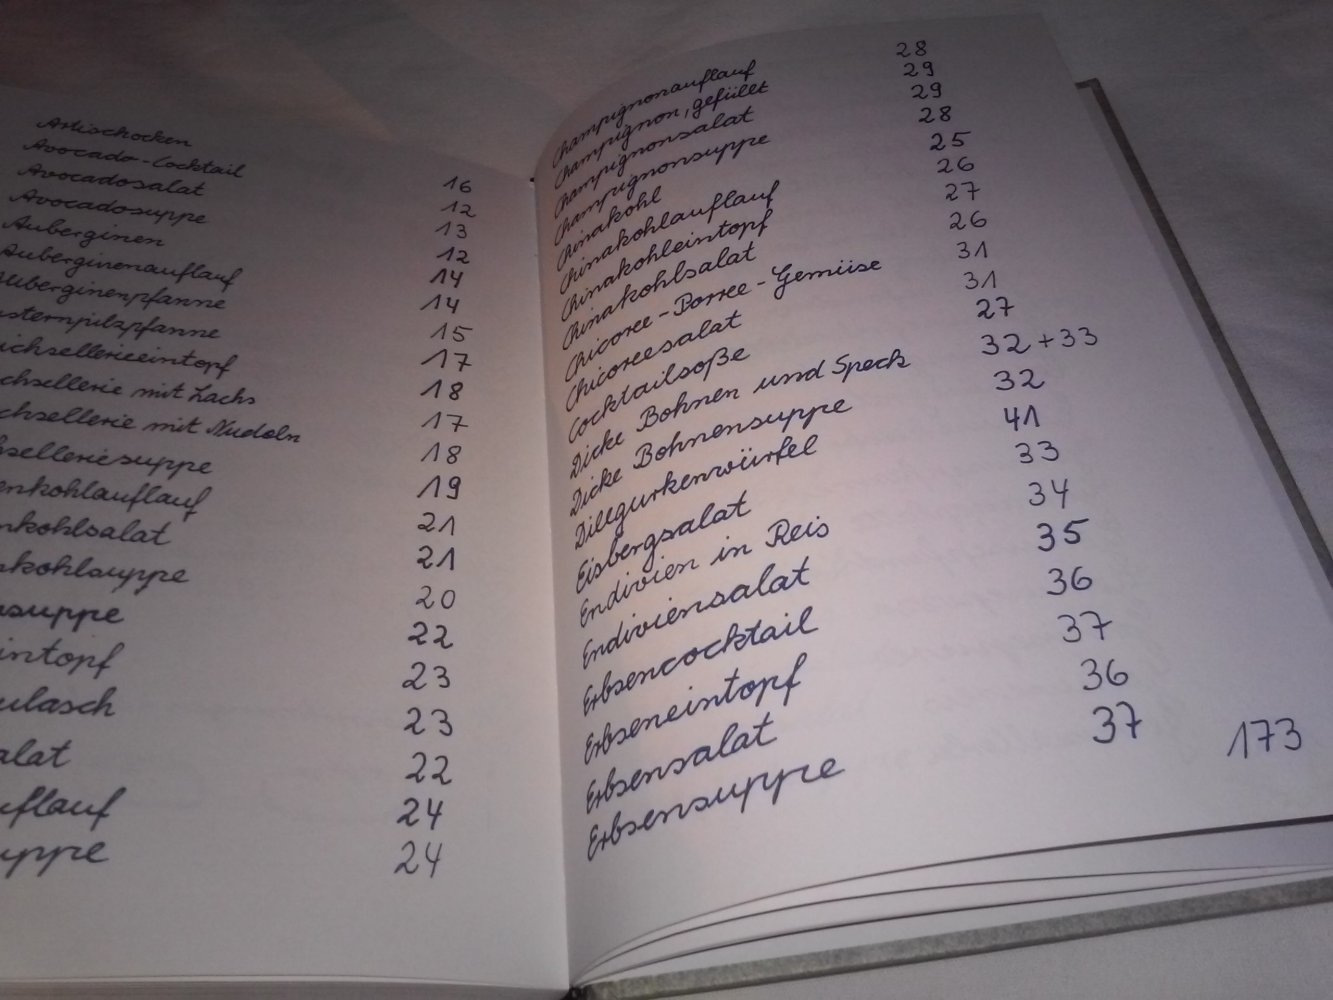 Artischocken 16
Avocado-Cocktail 12
Avocadosalat 13
Avocadosuppe 12
Auberginen 14
Auberginenauflauf 14
Auberginenpfanne 15
sternpilzpfanne 17
ichsellerieeintopf 18
chsellerie mit Lachs 17
chsellerie mit Nudeln 18
hselleriesuppe 19
enkohlauflauf 21
nkohlsalat 21
nkohlsuppe 20
nsuppe 22
intopf 23
ulasch 23
alat 22
uflauf 24
uppe 24
Champignonauflauf 28
Champignon, gefüllt 29
Champignonsalat 29
Champignonsuppe 28
Chinakohl 25
Chinakohlauflauf 26
Chinakohleintopf 27
Chinakohlsalat 26
Chicoree-Porree-Gemüse 31
Chicoreesalat 31
Cocktailsoße 27
Dicke Bohnen und Speck 32+33
Dicke Bohnensuppe 32
Dillgurkenwürfel 41
Eisbergsalat 33
Endivien in Reis 34
Endiviensalat 35
Erbsencocktail 36
Erbseneintopf 37
Erbsensalat 36
Erbsensuppe 37
173